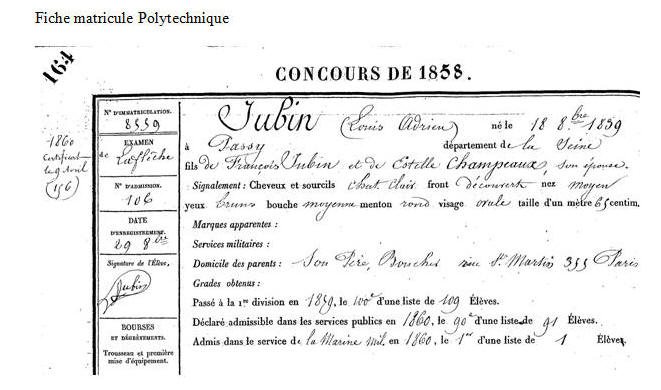 Fiche matricule Polytechnique
164
CONCOURS DE 1858.
1860
Certificat
le 9 Avril
(156)
N° D'IMMATRICULATION.
8559
EXAMEN
de Laflèche
N° D'ADMISSION.
106
DATE
D'ENREGISTREMENT.
29 8bre
Signature de l'Élève,
Jubin
BOURSES
ET DÉGRÈVEMENTS.
Trousseau et première
mise d'équipement.
Jubin (Louis Adrien) né le 18 8.bre 1839
à Passy département de la Seine
fils de François Jubin et de Estelle Champeaux, son épouse.
Signalement : Cheveux et sourcils chat. clair front découvert nez moyen
yeux bruns bouche moyenne menton rond visage ovale taille d'un mètre 65 centim.
Marques apparentes :
Services militaires :
Domicile des parents : Son Père, Boucher rue St Martin 355 Paris
Grades obtenus :
Passé à la 1re division en 1859, le 100e d'une liste de 109 Élèves.
Déclaré admissible dans les services publics en 1860, le 90e d'une liste de 91 Élèves.
Admis dans le service de la Marine mil. en 1860, le 1er d'une liste de 1 Élèves.